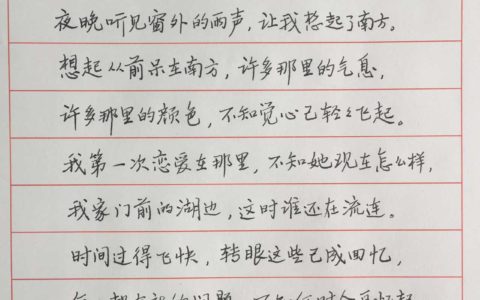 夜晚听见窗外的雨声，让我想起了南方。
想起从前呆在南方，许多那里的气息，
许多那里的颜色，不知觉心已轻轻飞起。
我第一次恋爱在那里，不知她现在怎么样，
我家门前的湖边，这时谁还在流连。
时间过得飞快，转眼这些已成回忆，